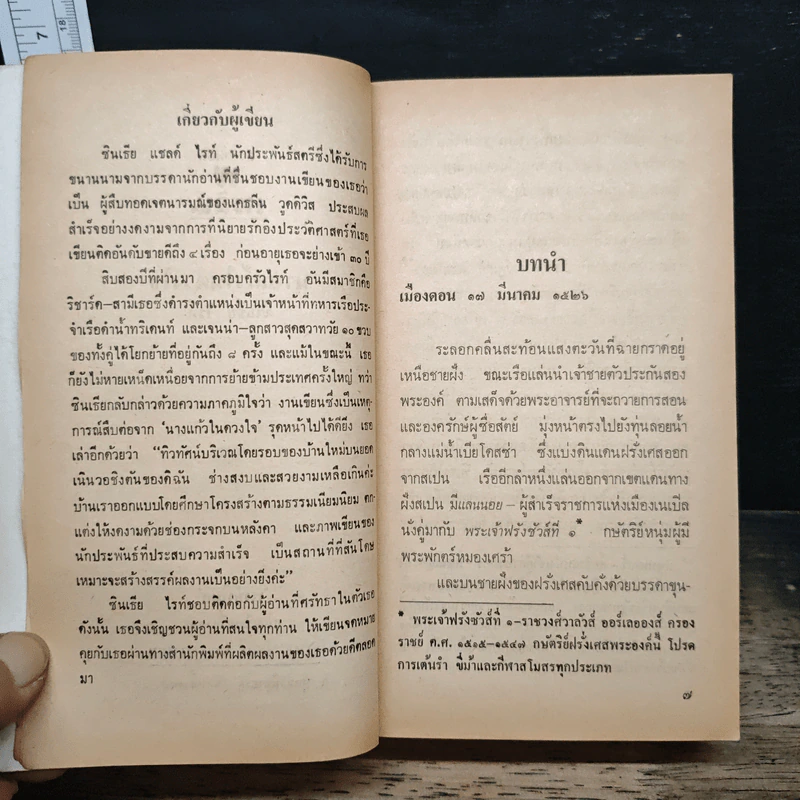 7
18
เกี่ยวกับผู้เขียน
ซินเธีย แชลด์ ไรท์ นักประพันธ์สตรีซึ่งได้รับการ
ขนานนามจากบรรดานักอ่านที่ชื่นชอบงานเขียนของเธอว่า
เป็น ผู้สืบทอดเจตนารมณ์ของแคธลีน วูดดิวิส ประสบผล
สำเร็จอย่างงดงามจากการที่นิยายรักอิงประวัติศาสตร์ที่เธอ
เขียนติดอันดับขายดีถึง ๔ เรื่อง ก่อนอายุเธอจะย่างเข้า ๓๐ ปี
สิบสองปีที่ผ่านมา ครอบครัวไรท์ อันมีสมาชิกคือ
ริชาร์ด–สามีเธอซึ่งดำรงตำแหน่งเป็นเจ้าหน้าที่ทหารเรือประ-
จำเรือดำน้ำทริเดนท์ และเจนน่า–ลูกสาวสุดสวาทวัย ๑๐ ขวบ
ของทั้งคู่ได้โยกย้ายที่อยู่กันถึง ๘ ครั้ง และแม้ในขณะนี้ เธอ
ก็ยังไม่หายเหน็ดเหนื่อยจากการย้ายข้ามประเทศครั้งใหญ่ ทว่า
ซินเธียกลับกล่าวด้วยความภาคภูมิใจว่า งานเขียนซึ่งเป็นเหตุ-
การณ์สืบต่อจาก ‘นางแก้วในดวงใจ’ รุดหน้าไปได้ดียิ่ง เธอ
เล่าอีกด้วยว่า “ทิวทัศน์บริเวณโดยรอบของบ้านใหม่บนยอด
เนินวอชิงตันของดิฉัน ช่างสงบและสวยงามเหลือเกินค่ะ
บ้านเราออกแบบโดยศึกษาโครงสร้างตามธรรมเนียมนิยม ตก-
แต่งให้งดงามด้วยช่องกระจกบนหลังคา และภาพเขียนของ
นักประพันธ์ที่ประสบความสำเร็จ เป็นสถานที่ที่สันโดษ
เหมาะจะสร้างสรรค์ผลงานเป็นอย่างยิ่งค่ะ”
ซินเธีย ไรท์ชอบติดต่อกับผู้อ่านที่ศรัทธาในตัวเธอ
ดังนั้น เธอจึงเชิญชวนผู้อ่านที่สนใจทุกท่าน ให้เขียนจดหมาย
คุยกับเธอผ่านทางสำนักพิมพ์ที่ผลิตผลงานของเธอด้วยดีตลอด
มา
บทนำ
เมืองดอน ๑๗ มีนาคม ๑๕๒๖
ระลอกคลื่นสะท้อนแสงตะวันที่ฉายกราดอยู่
เหนือชายฝั่ง ขณะเรือแล่นนำเจ้าชายตัวประกันสอง
พระองค์ ตามเสด็จด้วยพระอาจารย์ที่จะถวายการสอน
และองครักษ์ผู้ซื่อสัตย์ มุ่งหน้าตรงไปยังทุ่นลอยน้ำ
กลางแม่น้ำเบียโดสซ่า ซึ่งแบ่งดินแดนฝรั่งเศสออก
จากสเปน เรืออีกลำหนึ่งแล่นออกจากเขตแดนทาง
ฝั่งสเปน มีแลนนอย – ผู้สำเร็จราชการแห่งเมืองเนเปิล
นั่งคู่มากับ พระเจ้าฟรังซัวส์ที่ ๑* กษัตริย์หนุ่มผู้มี
พระพักตร์หมองเศร้า
และบนชายฝั่งของฝรั่งเศสคับคั่งด้วยบรรดาขุน-
* พระเจ้าฟรังซัวส์ที่ ๑–ราชวงศ์วาลัวส์ ออร์เลอองส์ ครอง
ราชย์ ค.ศ. ๑๕๑๕–๑๕๔๗ กษัตริย์ฝรั่งเศสพระองค์นี้ โปรด
การเต้นรำ ขี่ม้าและกีฬาสโมสรทุกประเภท
๗